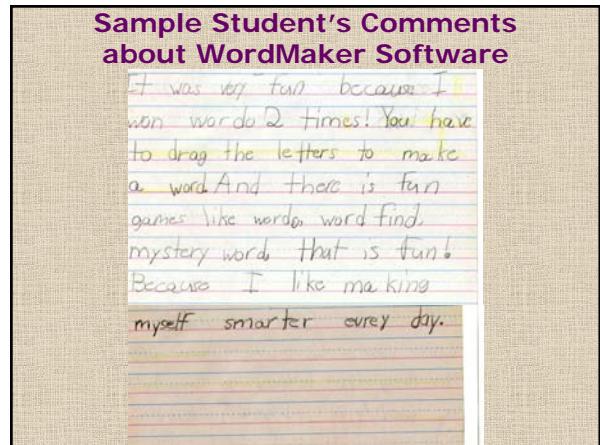 Sample Student's Comments
about WordMaker Software
It was very fun because I
won wordo 2 times! You have
to drag the letters to make
a word. And there is fun
games like wordo, word find,
mystery word, that is fun!
Because I like making
myself smarter evrey day.